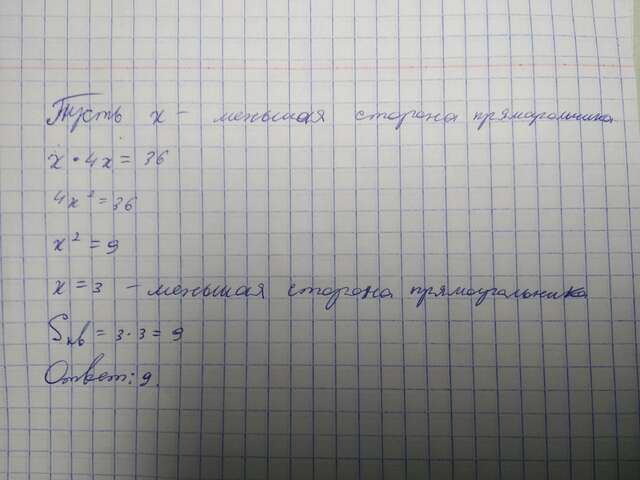 Пусть x - меньшая сторона прямоугольника
x · 4x = 36
4x² = 36
x² = 9
x = 3 - меньшая сторона прямоугольника
Sкв = 3·3 = 9
Ответ: 9.